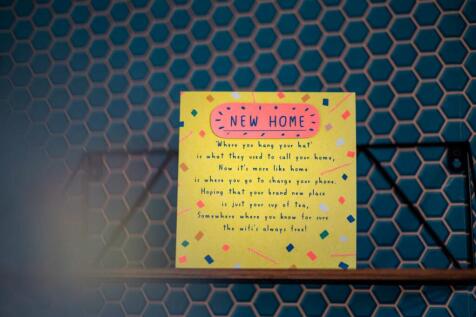 NEW HOME
'Where you hang your hat'
is what they used to call your home,
Now it's more like home
is where you go to charge your phone.
Hoping that your brand new place
is just your cup of tea,
Somewhere where you know for sure
the wifi's always free!